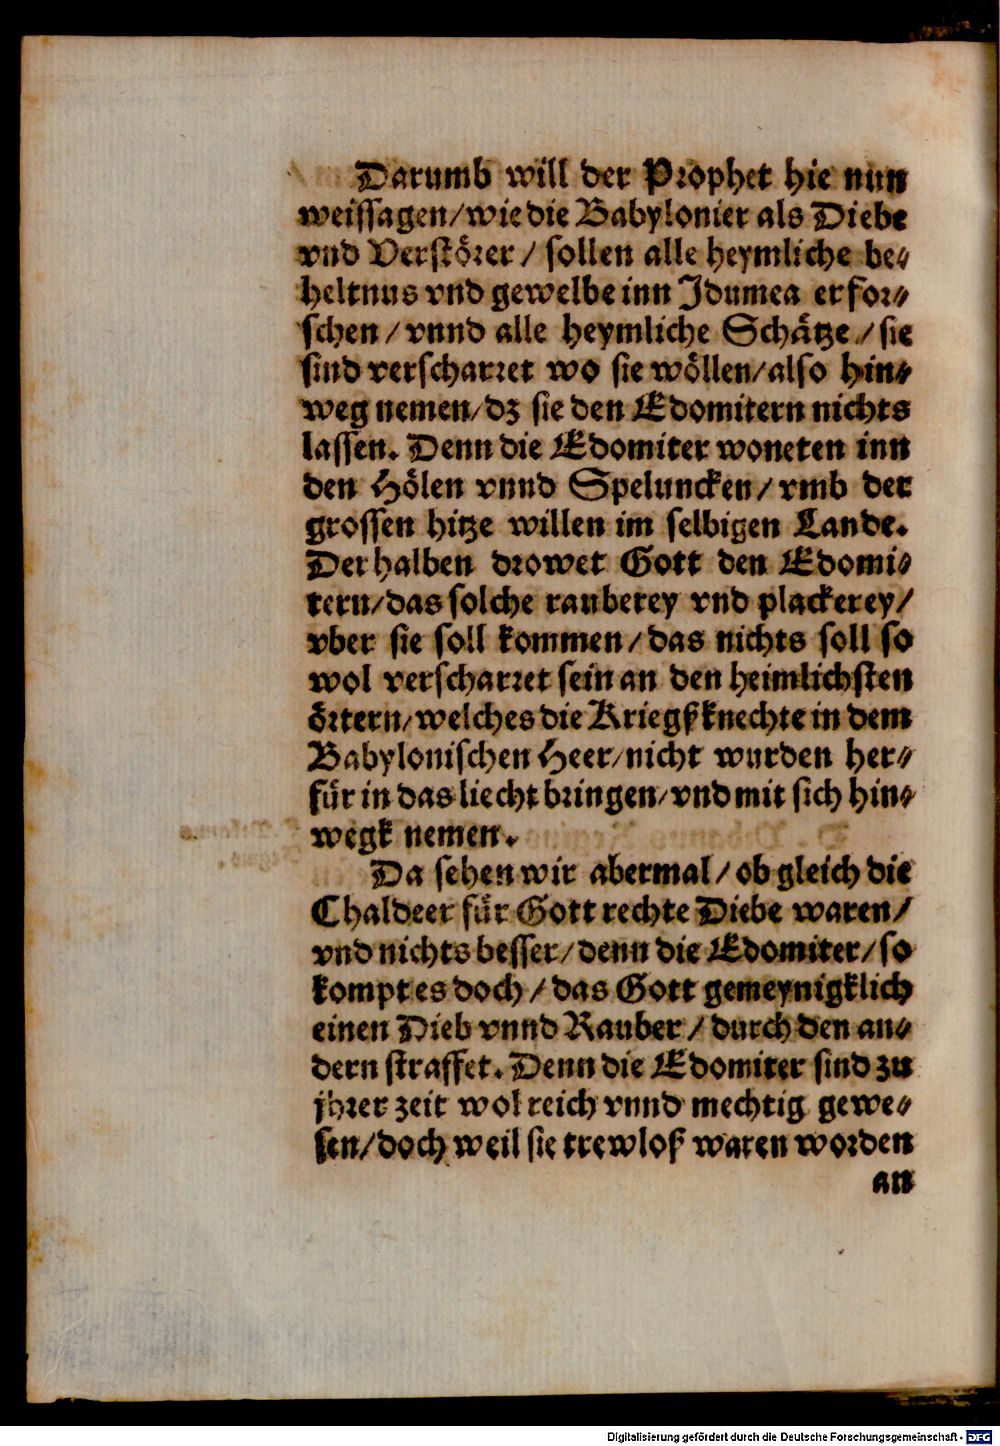 Darumb will der Prophet hie nun
weissagen/wie die Babylonier als Diebe
vnd Verstörer/ sollen alle heymliche be⸗
heltnus vnd gewelbe inn Idumea erfor⸗
schen/ vnnd alle heymliche Schätze/ sie
sind verscharret wo sie wöllen/also hin⸗
weg nemen/dz sie den Edomitern nichts
lassen. Denn die Edomiter woneten inn
den Hölen vnnd Speluncken/ vmb der
grossen hitze willen im selbigen Lande.
Derhalben drowet Gott den Edomi⸗
tern/das solche rauberey vnd plackerey/
vber sie soll kommen/das nichts soll so
wol verscharret sein an den heimlichsten
örtern/welches die Kriegßknechte in dem
Babylonischen Heer/nicht wurden her⸗
für in das liecht bringen/vnd mit sich hin⸗
wegk nemen.
Da sehen wir abermal/ob gleich die
Chaldeer für Gott rechte Diebe waren/
vnd nichts besser/denn die Edomiter/so
kompt es doch/das Gott gemeynigklich
einen Dieb vnnd Rauber/durch den an⸗
dern straffet. Denn die Edomiter sind zu
jhrer zeit wol reich vnnd mechtig gewe⸗
sen/doch weil sie trewloß waren worden
an
Digitalisierung gefördert durch die Deutsche Forschungsgemeinschaft - DFG